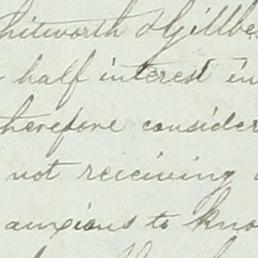 hitworth & Gillbe
half interest in
therefore consider
not reiciving
anxious to kno